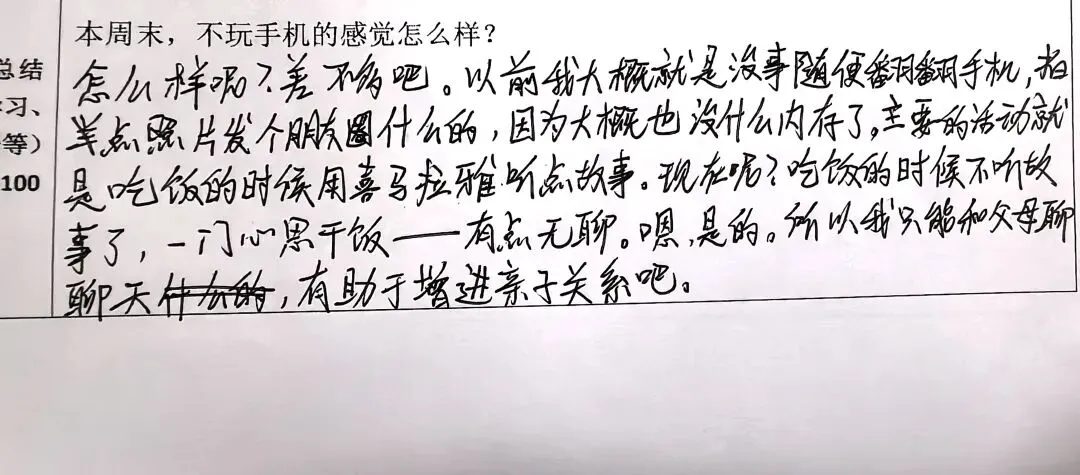 本周末，不玩手机的感觉怎么样？
总结
习、
等）
100
怎么样呢？差不多吧。以前我大概就是没事随便翻翻手机，拍
点照片发个朋友圈什么的，因为大概也没什么内存了。主要的活动就
是吃饭的时候用喜马拉雅听点故事。现在呢？吃饭的时候不听故
事了，一门心思干饭——有点无聊。嗯，是的。所以我只能和父母聊
聊天什么的，有助于增进亲子关系吧。